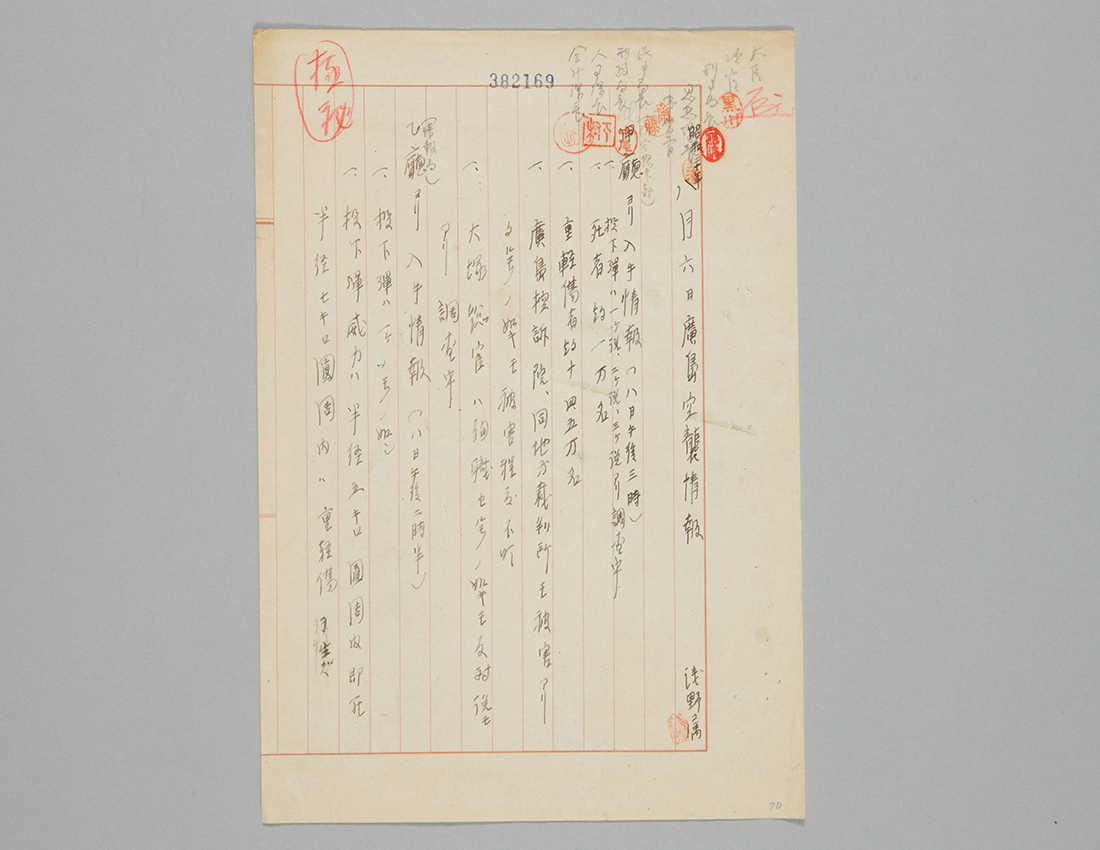 極秘
382169
大臣
次官
刑事局長
民事局長
刑政局長
人事課長
会計課長
八月六日廣島空襲情報
浅野属
甲廳ヨリ入手情報(八日午後三時)
一、投下彈ハ一ケ説、二ケ説、三ケ説アリ調査中
一、死者約一万名
一、重輕傷者約十四五万名
一、廣島控訴院、同地方裁判所モ被害アリ
タル等ノ如キモ被害程度不明
一、大塚総監ハ殉職セル等ノ如キモ反対説モ
アリ調査中
乙廳ヨリ入手情報(八日午後二時半)
(情報局)
一、投下彈ハ一ケノ等ノ如シ
一、投下彈威力ハ半径五キロ圓周内即死
半径七キロ圓周内ハ重軽傷
70